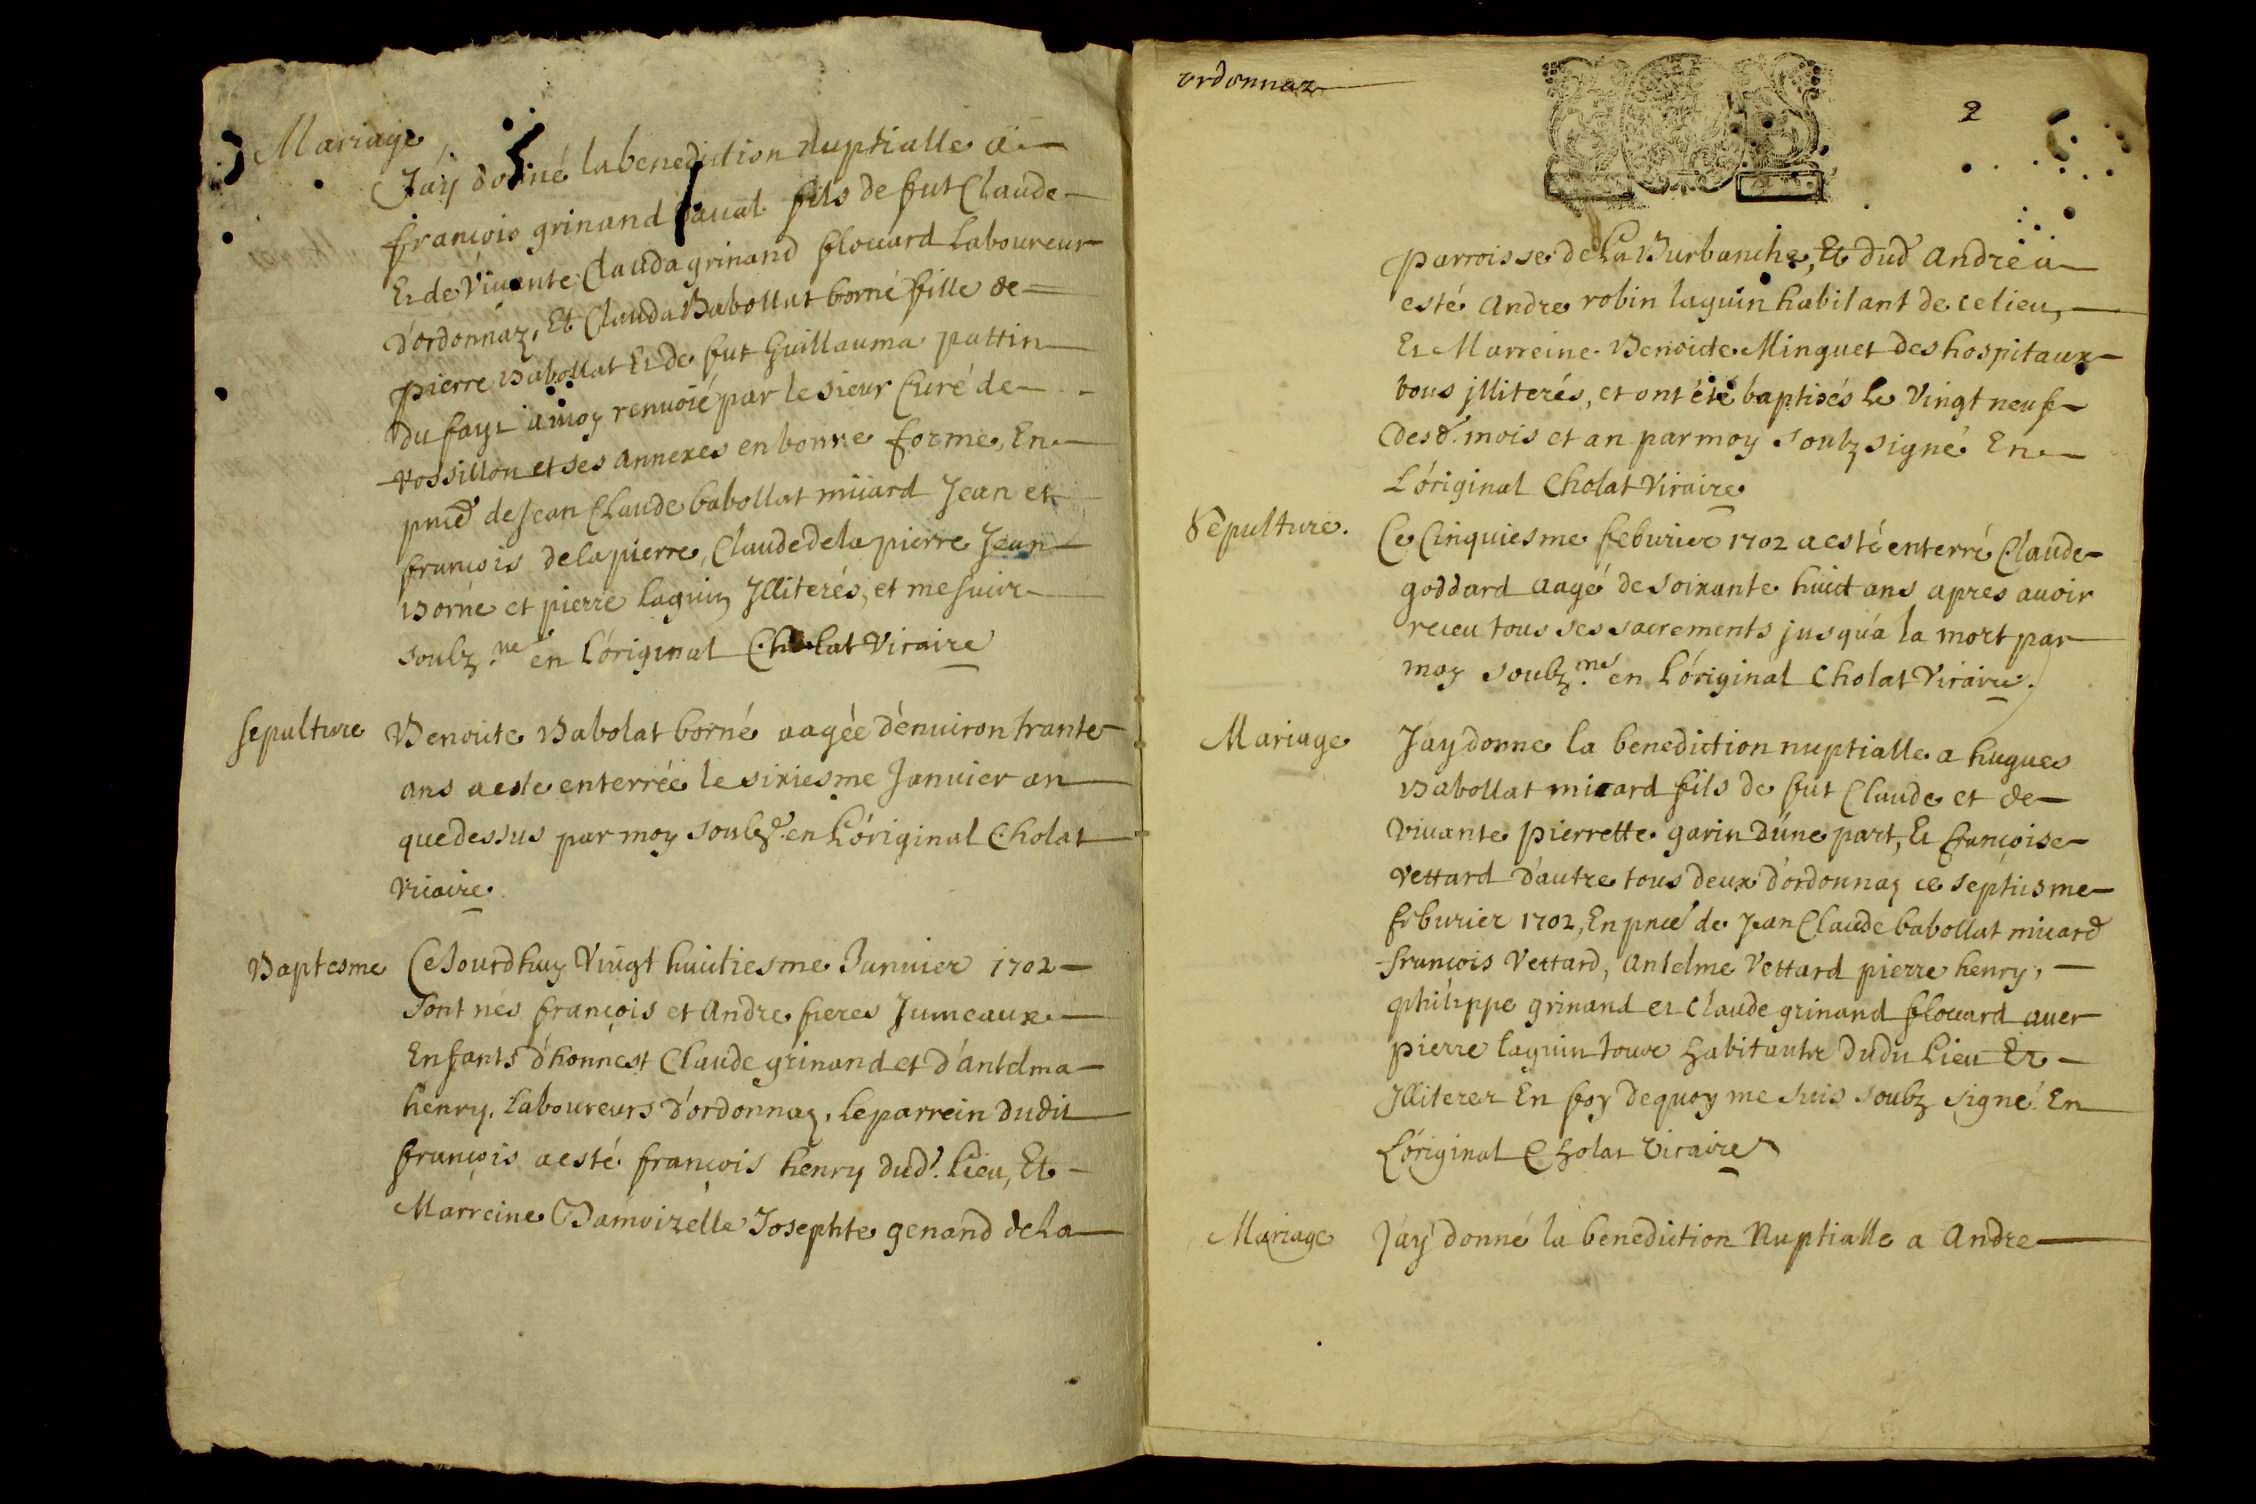 Mariage
J'ay donné la benediction Nuptialle a
françois grinand fils de fut Claude
Et de Vivante Clauda grinand flouard Laboureur
D'ordonnaz, Et Clauda Babollat borné fille de
pierre Babollat Et de fut Guillauma pattin
du fayt a moy renvoié par le sieur Curé de
Rossillon et ses annexes en bonne forme, En
pnce de Jean Claude babollat miiard Jean et
françois de la pierre, Claude de la pierre Jean
Borne et pierre laguin Jlliterés, et me suis
soubz.né en L'original Cholat Vicaire
Sepulture
Benoite Babolat borné aagée d'environ trante
ans a este enterrée le sixiesme Janvier an
que dessus par moy soubz.é en L'original Cholat
Vicaire
Baptesme
Ce Jourdhuy Vingt huictiesme Janvier 1702
sont nés françois et Andre freres Jumeaux
Enfants d'honnest Claude grinand et d'antelma
henry, Laboureurs d'ordonnaz, le parrein dudit
françois a esté françois henry dud.t Lieu, Et
Marreine Damoizelle Josephte genand de La
ordonnaz
2
parroisse de La Burbanche, Et dud Andre a
esté Andre robin laguin habitant de ce lieu,
Et Marreine Benoite Minguet des hospitaux
tous jlliterés, et ont été baptisés le Vingt neuf
desd. mois et an par moy soubz signé En
L'original Cholat Vicaire
Sepulture.
Ce Cinquiesme feburier 1702 a esté enterré Claude
goddard aagé de soixante huict ans apres avoir
receu tous ses sacrements jusqu'a la mort par
moy soubz.mé en L'original Cholat Vicaire.
Mariage
J'ay donne la benediction nuptialle a hugues
Babollat micard fils de fut Claude et de
Vivante pierrette garin d'une part, Et françoise
Vettard d'autre tous deux d'ordonnaz ce septiesme
feburier 1702, En pnce de Jean Claude babollat miiard
françois Vettard, antelme Vettard pierre henry,
philippe grinand et Claude grinand flouard avec
pierre laguin tous habitants dudit Lieu Et
Jlliterez En foy de quoy me suis soubz signé En
L'original Cholat Vicaire
Mariage
J'ay donné la benediction Nuptialle a Andre